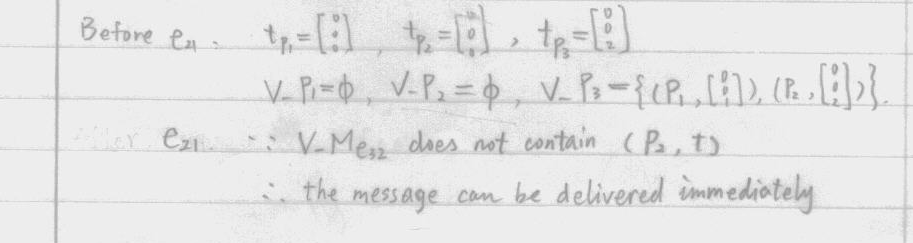 Before e₂₁: t_P₁ = [0 0 0], t_P₂ = [0 0 0], t_P₃ = [0 0 2]
V_P₁ = ϕ, V_P₂ = ϕ, V_P₃ = {(P₁, [0 0 1]), (P₂, [0 0 2])}.
e₂₁ ∵ V_M e₃₂ does not contain (P₂, t)
∴ the message can be delivered immediately